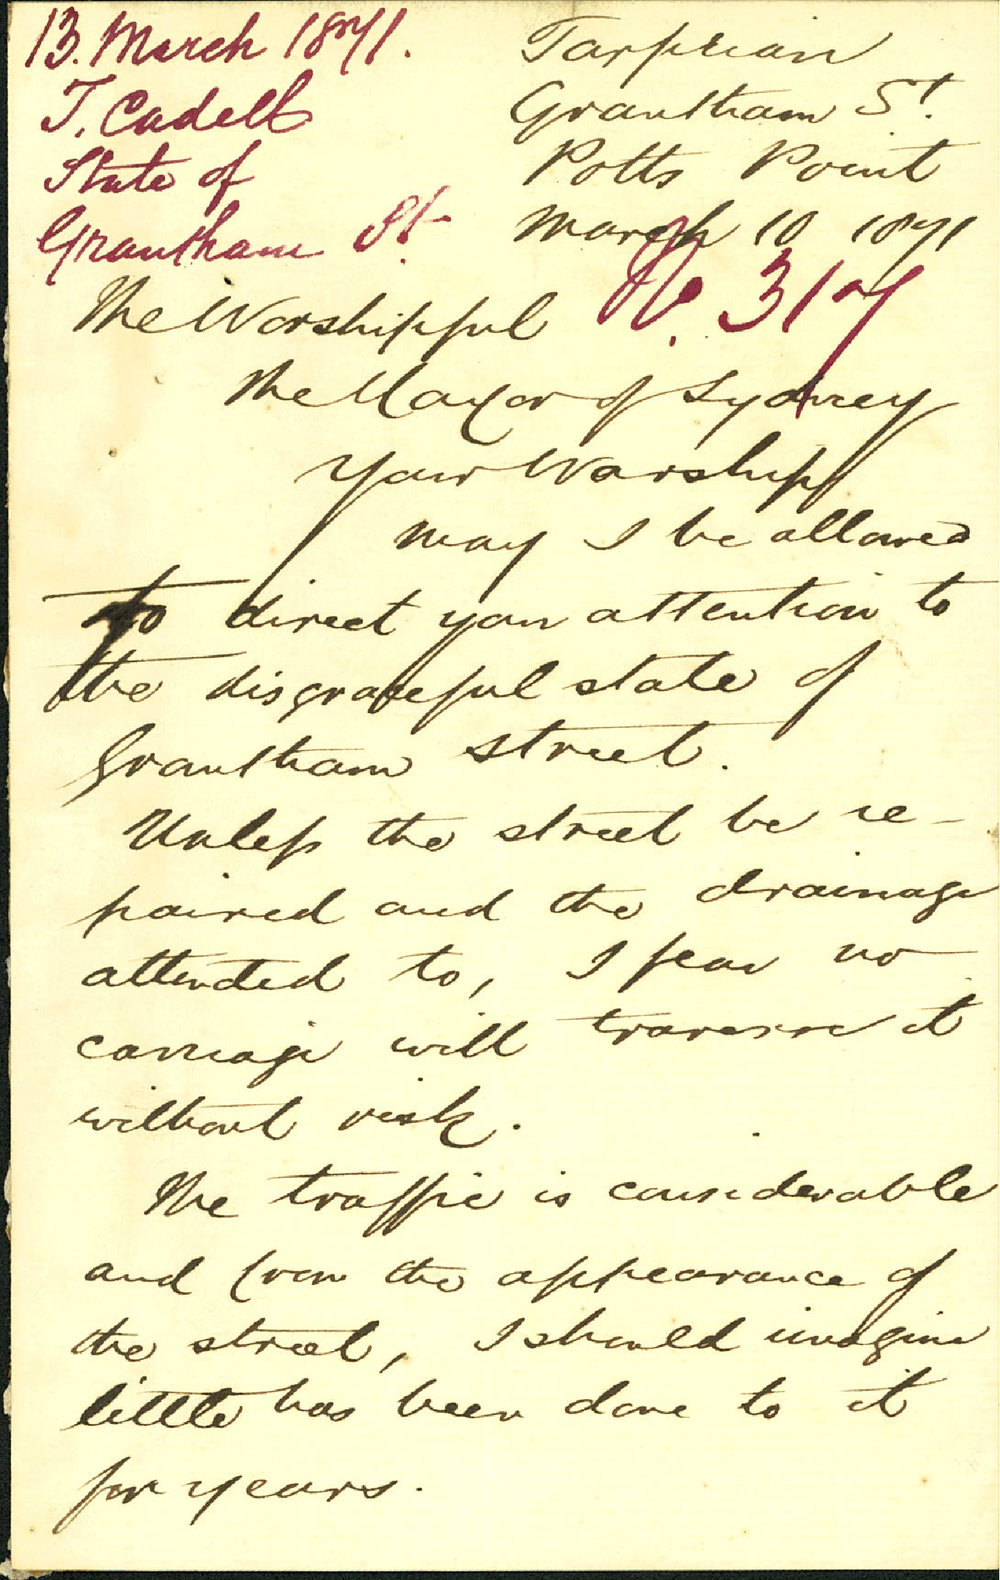 13. March 1871.
T. Cadell
State of
Grantham St.
Tarpeian
Grantham St.
Potts Point
March 10 1871
No. 317
The Worshipful
The Mayor of Sydney
Your Worship
May I be allowed
to direct your attention to
the disgraceful state of
Grantham street.
Unless the street be re-
paired and the drainage
attended to, I fear no
carriage will traverse it
without risk.
The traffic is considerable
and from the appearance of
the street, I should imagine
little has been done to it
for years.